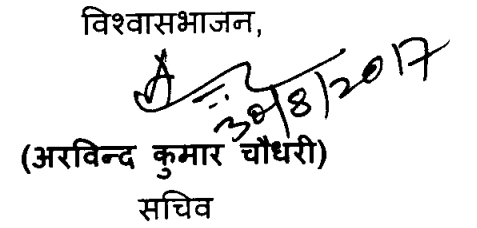 विश्वासभाजन,
30/8/2017
(अरविन्द कुमार चौधरी)
सचिव